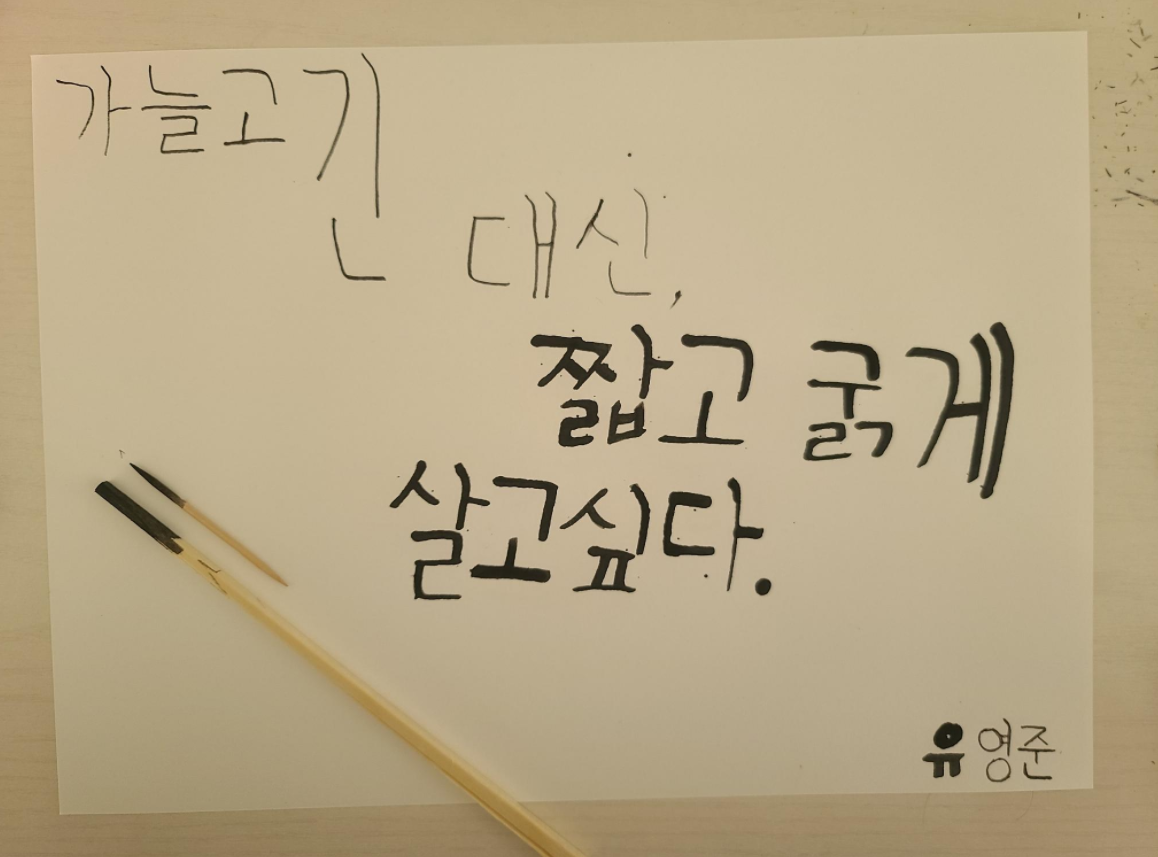 가늘고긴
대신,
짧고 굵게
살고싶다.
유영준